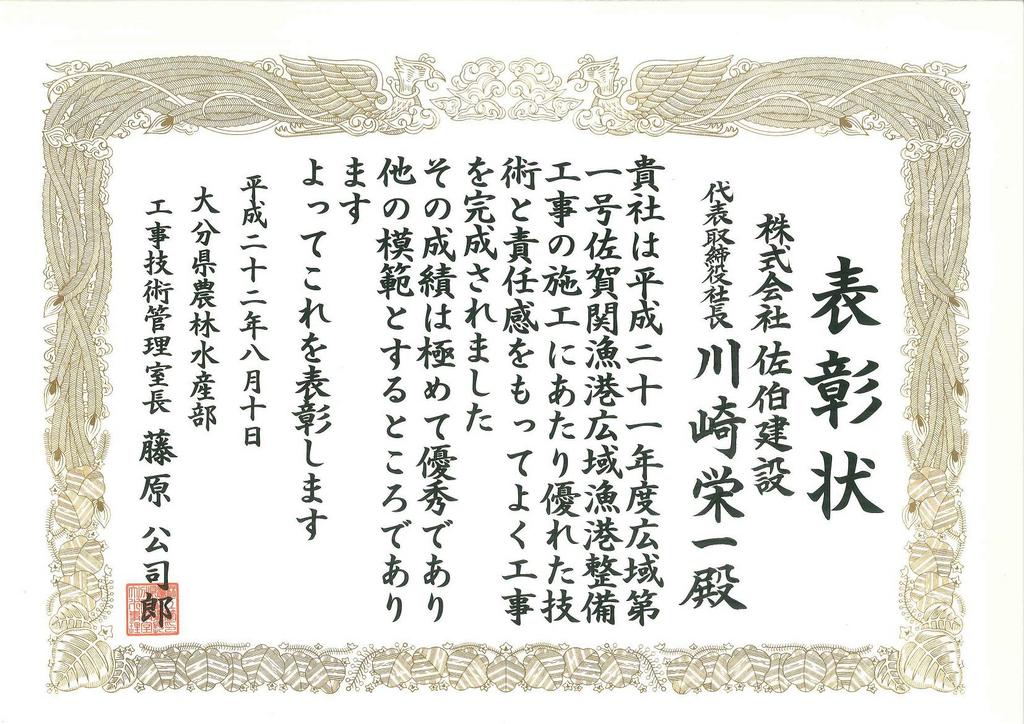 表彰状
株式会社 佐伯建設
代表取締役社長 川崎栄一殿
貴社は平成二十一年度広域第
一号佐賀関漁港広域漁港整備
工事の施工にあたり優れた技
術と責任感をもってよく工事
を完成されました
その成績は極めて優秀であり
他の模範とするところであり
ます
よってこれを表彰します
平成二十二年八月十日
大分県農林水産部
工事技術管理室長 藤原 公司郎